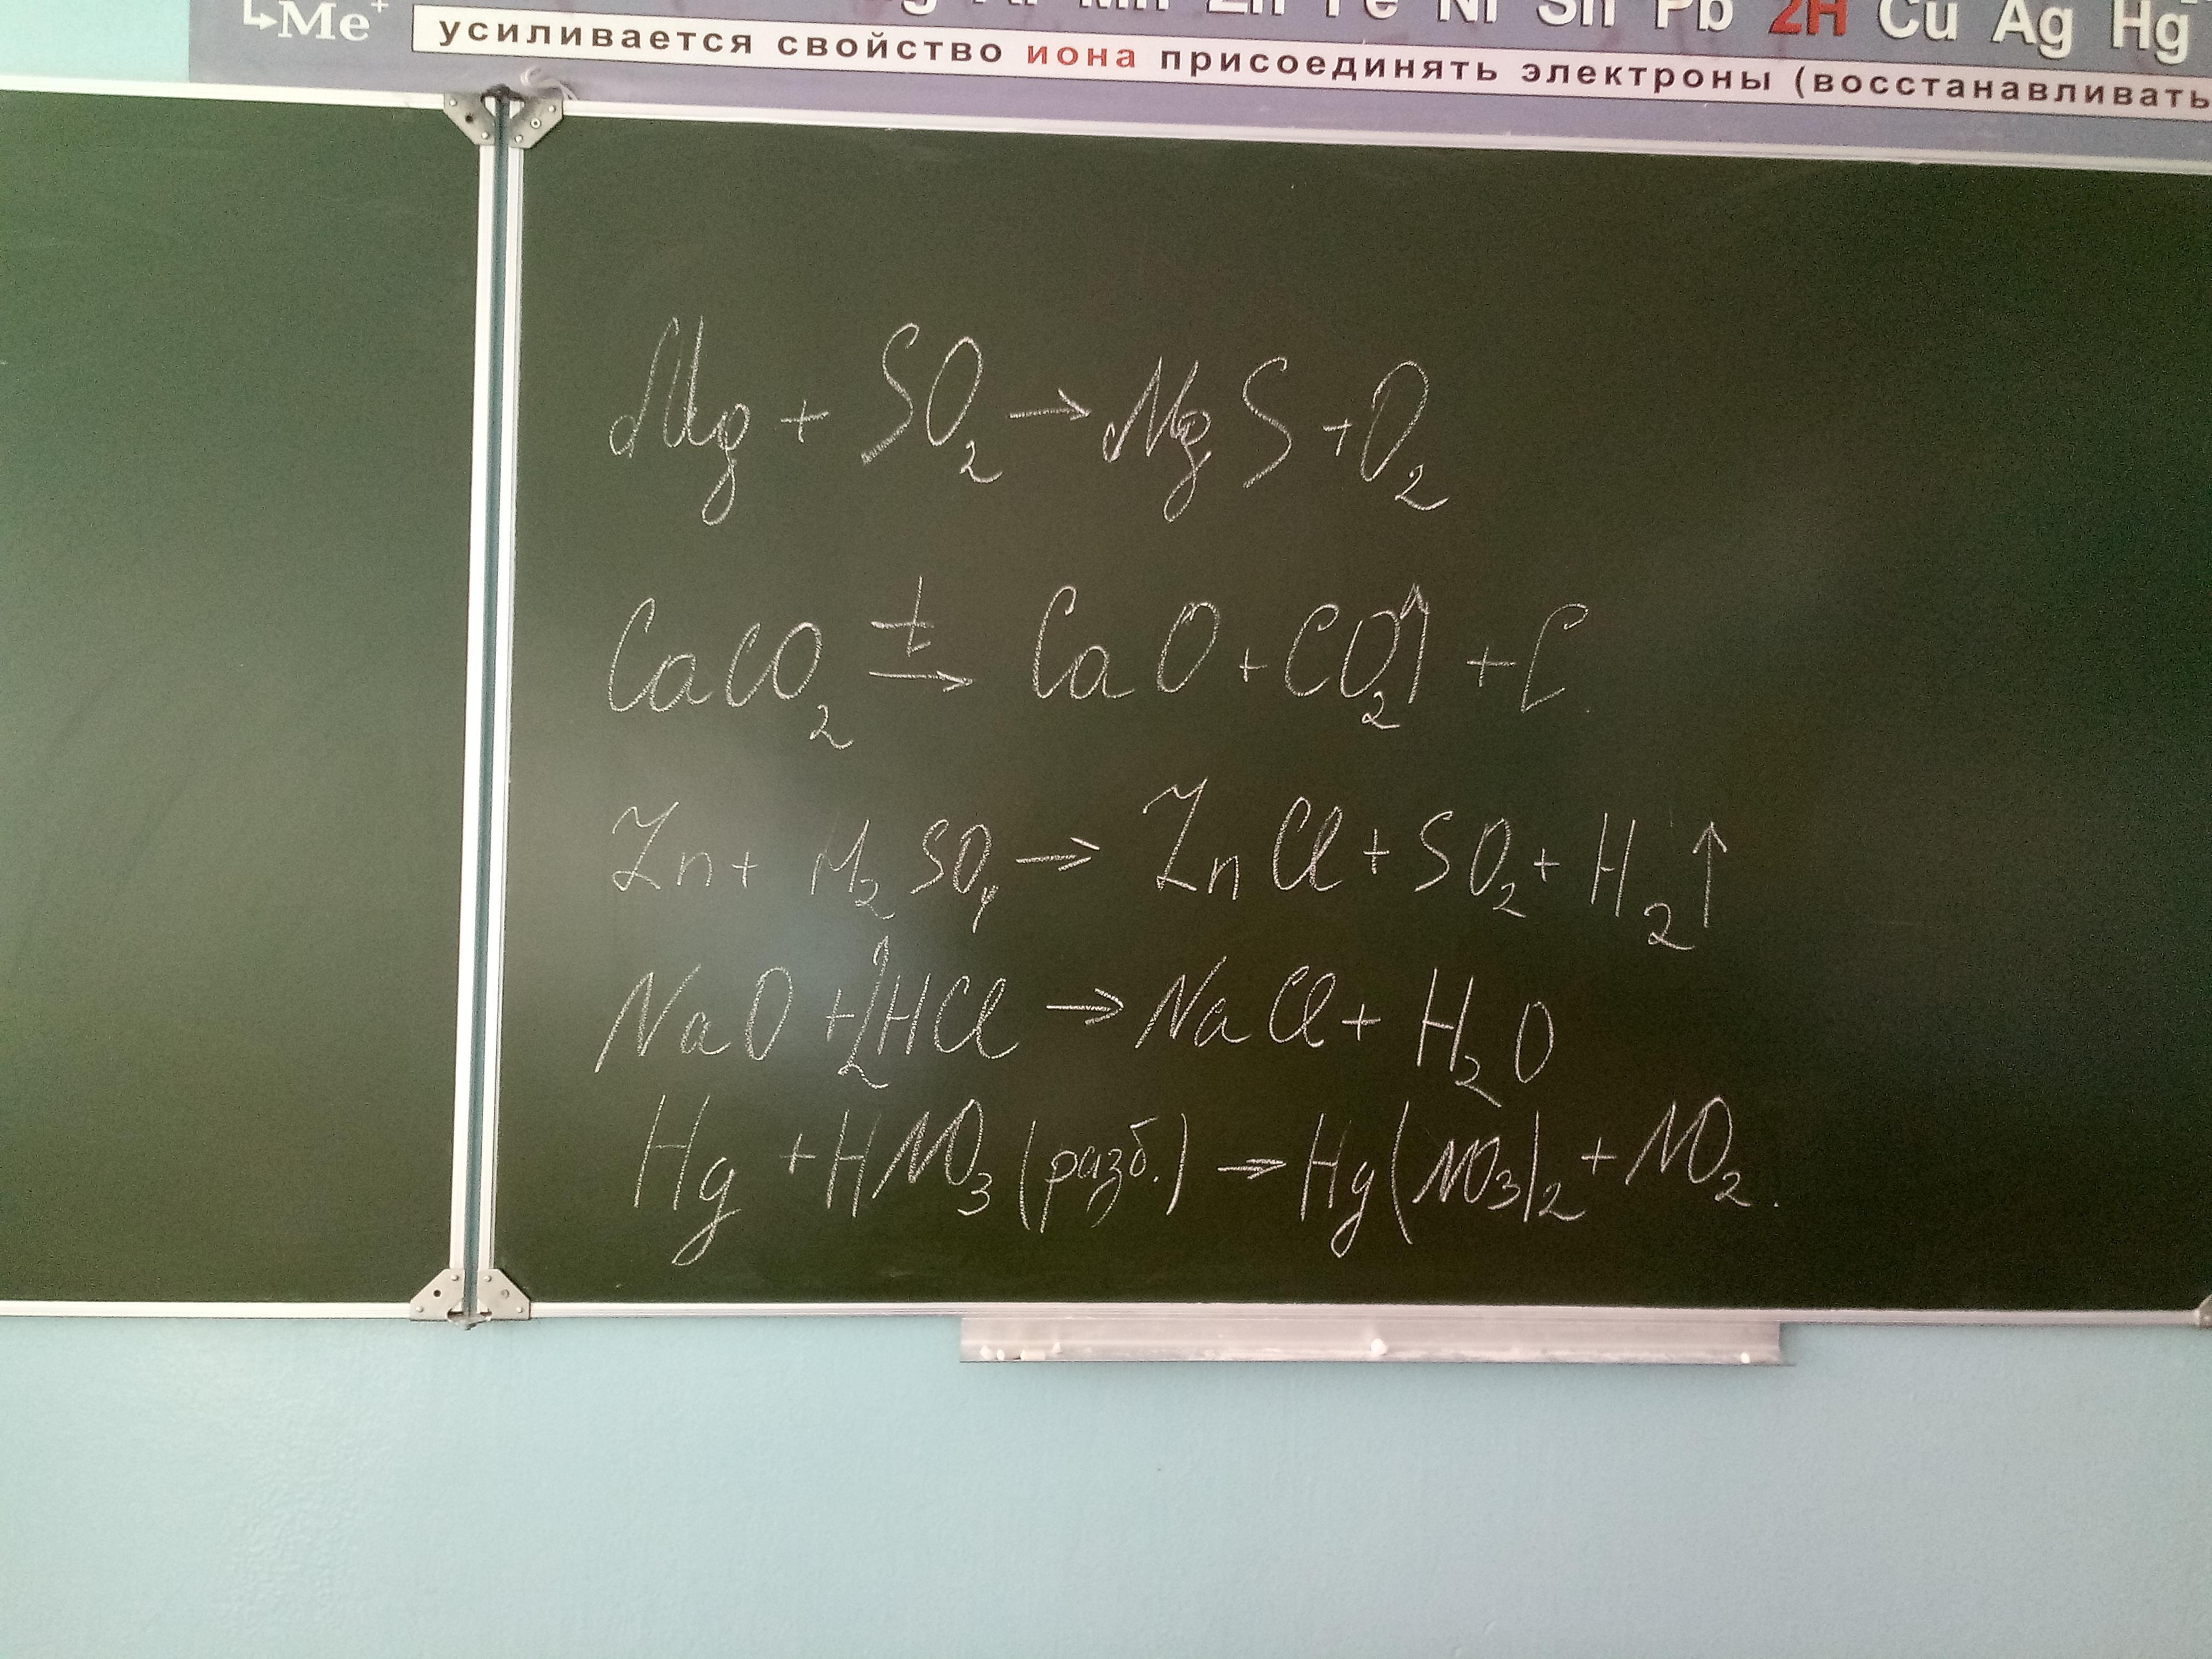 ↳Me⁺ Mn Zn Fe Ni Sn Pb 2H Cu Ag Hg
усиливается свойство иона присоединять электроны (восстанавливать
Mg + SO₂ → MgS + O₂
CaCO₂ t→ CaO + CO₂↑ + C
Zn + H₂SO₄ → ZnCl + SO₂ + H₂↑
NaO + 2HCl → NaCl + H₂O
Hg + HNO₃ (разб.) → Hg(NO₃)₂ + NO₂.